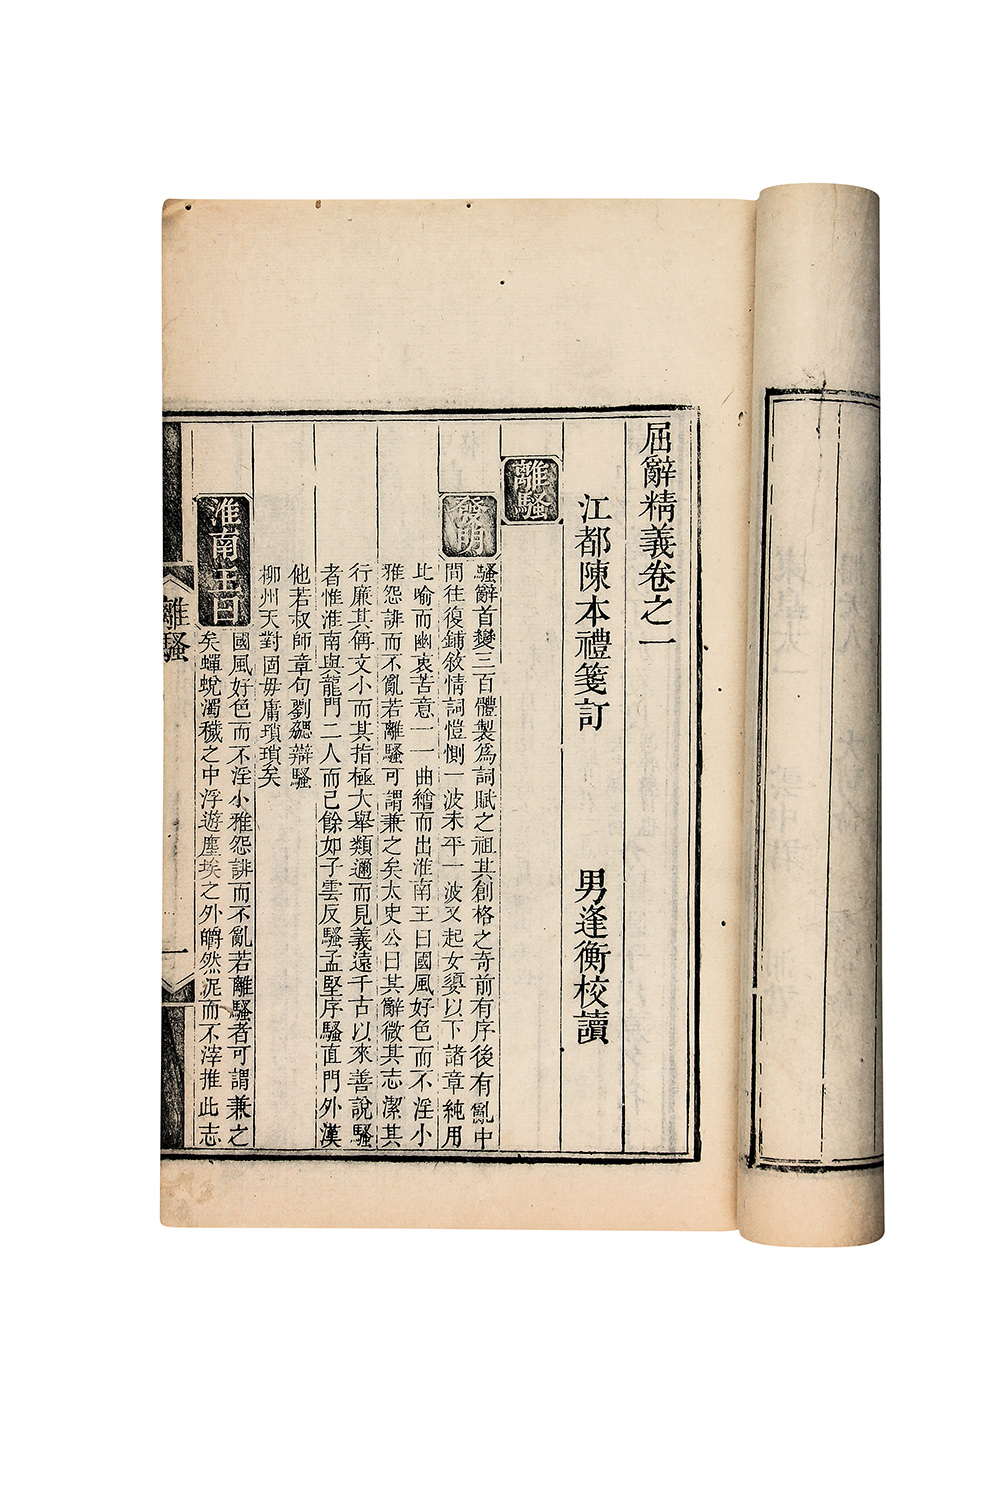 屈辭精義卷之一
江都陳本禮箋訂　男逢衡校讀
離騷
發明
騷辭首變三百體製爲詞賦之祖其創格之奇前有序後有亂中
間往復鋪敘情詞愷惻一波未平一波又起女嬃以下諸章純用
比喻而幽衷苦意一一曲繪而出淮南王曰國風好色而不淫小
雅怨誹而不亂若離騷可謂兼之矣太史公曰其辭微其志潔其
行廉其稱文小而其指極大舉類邇而見義遠千古以來善說騷
者惟淮南與龍門二人而已餘如子雲反騷孟堅序騷直門外漢
他若叔師章句劉勰辯騷
柳州天對固毋庸瑣瑣矣
淮南王曰
國風好色而不淫小雅怨誹而不亂若離騷者可謂兼之
矣蟬蛻濁穢之中浮遊塵埃之外皭然泥而不滓推此志
離騷
一